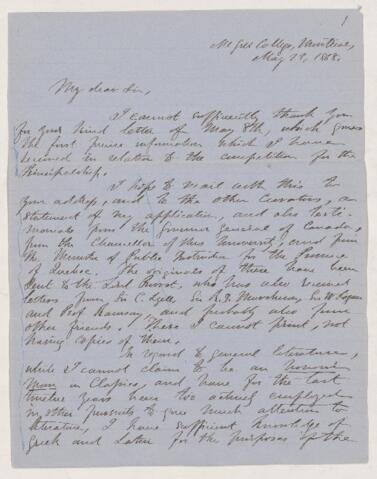 1
McGill College, Montreal,
May 19, 1868.
My dear Sir,
I cannot sufficiently thank you
for your kind letter of May 8th, which gives
the first precise information which I have
received in relation to the competition for the
Principalship.
I hope to mail with this to
your address, and to the other Curators, a
statement of my application, and also testi-
monials from the Governor General of Canada,
from the Chancellor of this University, and from
the Minister of Public Instruction for the Province
of Quebec. The originals of these have been
sent to the Lord Provost, who has also received
letters from Sir C. Lyell, Sir R. I. Murchison, Sir W. Logan
and Prof. Ramsay, and probably also from
other friends. These I cannot print, not
having copies of them.
In regard to general literature,
while I cannot claim to be an
man in Classics, and have for the last
twelve years been too actively employed
in other pursuits to give much attention to
literature, I have sufficient knowledge of
Greek and Latin for the purposes of the